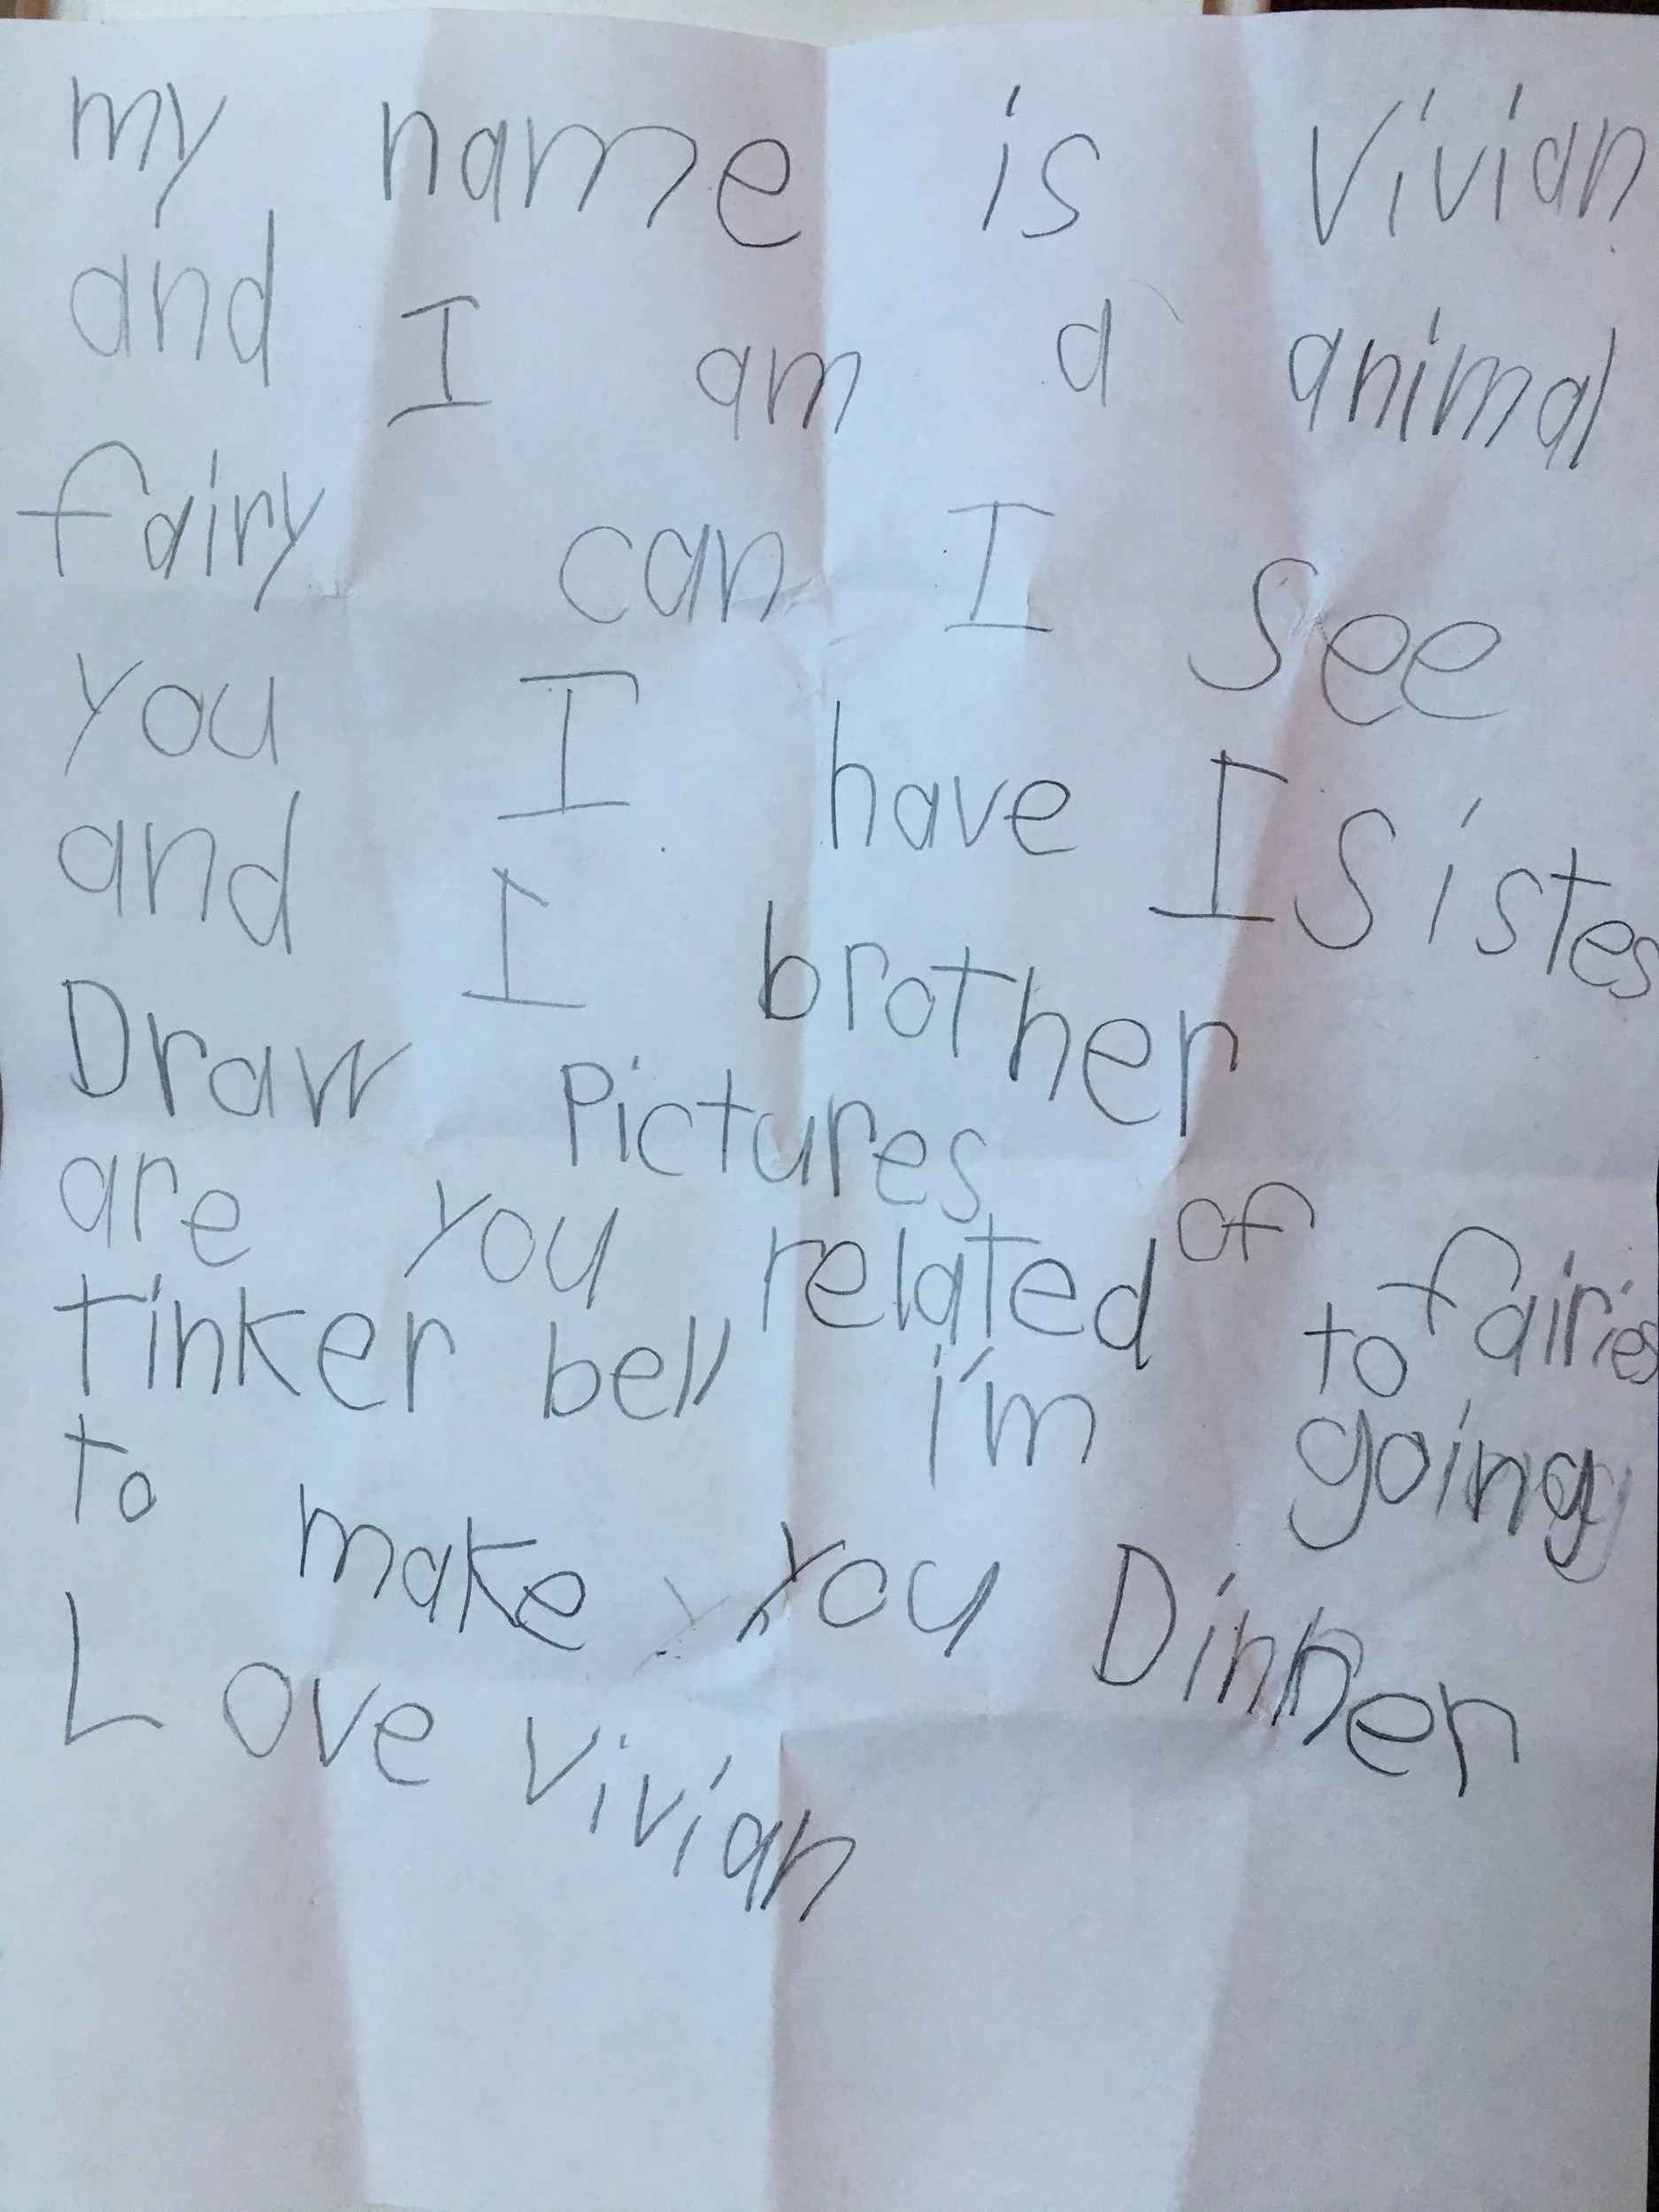 my name is Vivian
and I am a animal
fairy can I see
you I have I Sistes
and I brother
Draw Pictures of fairies
are you related to
tinker bell i'm going
to make you Dinner
Love Vivian